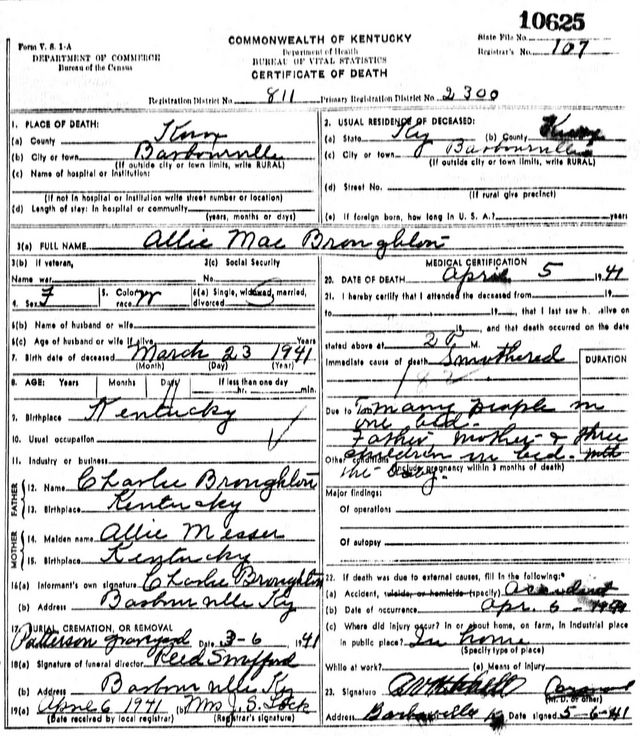 10625
Form V. S. 1-A
DEPARTMENT OF COMMERCE
Bureau of the Census
COMMONWEALTH OF KENTUCKY
Department of Health
BUREAU OF VITAL STATISTICS
CERTIFICATE OF DEATH
State File No.
Registrar's No. 107
Registration District No. 811 Primary Registration District No. 2300
1. PLACE OF DEATH:
(a) County Knox
(b) City or town Barbourville
(If outside city or town limits, write RURAL)
(c) Name of hospital or institution:
(If not in hospital or institution write street number or location)
(d) Length of stay: In hospital or community
(years, months or days)
2. USUAL RESIDENCE OF DECEASED:
(a) State Ky (b) County
(c) City or town Barbourville
(If outside city or town limits, write RURAL)
(d) Street No.
(If rural give precinct)
(e) If foreign born, how long in U. S. A.? years
3(a) FULL NAME Allie Mae Broughton
3(b) If veteran,
Name war
3(c) Social Security
No.
4. Sex F 5. Color or race W 6(a) Single, widowed, married, divorced S
6(b) Name of husband or wife
6(c) Age of husband or wife if alive Years
7. Birth date of deceased March 23 1941
(Month) (Day) (Year)
8. AGE: Years Months Days If less than one day
hr. min.
9. Birthplace Kentucky
10. Usual occupation
11. Industry or business
FATHER
12. Name Charlie Broughton
13. Birthplace Kentucky
MOTHER
14. Maiden name Allie Messer
15. Birthplace Kentucky
16(a) Informant's own signature Charlie Broughton
(b) Address Barbourville Ky
17. BURIAL, CREMATION, OR REMOVAL
Patterson graveyard Date 3-6 1941
18(a) Signature of funeral director
(b) Address Barbourville Ky
19(a) April 6 1941 (b) Mrs J. S. Lock
(Date received by local registrar) (Registrar's signature)
MEDICAL CERTIFICATION
20. DATE OF DEATH April 5 1941
21. I hereby certify that I attended the deceased from 19
to 19 , that I last saw h alive on
19 , and that death occurred on the date
stated above at M.
Immediate cause of death Smothered
DURATION
Due to Too many people in
one bed.
Father, mother & three
children in bed with
the baby.
Other conditions
(Include pregnancy within 3 months of death)
Major findings:
Of operations
Of autopsy
22. If death was due to external causes, fill in the following:
(a) Accident, suicide, or homicide (specify) Accident
(b) Date of occurrence Apr. 6 - 1941
(c) Where did injury occur? In or about home, on farm, in industrial place
in public place? In home
(Specify type of place)
While at work? (e) Means of Injury
23. Signature
(M. D. or other)
Address Barbourville Ky Date signed 5-6-41